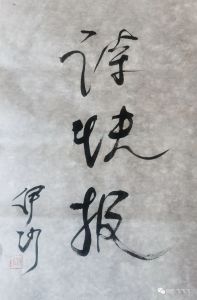 诗快报
伊沙